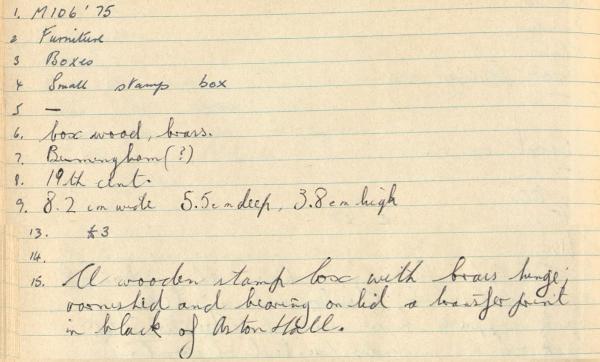 1. M106'75
2 Furniture
3 Boxes
4 Small stamp box
5 —
6. box wood, brass.
7. Birmingham (?)
8. 19th cent.
9. 8.2 cm wide 5.5cm deep, 3.8cm high
13. £3
14.
15. A wooden stamp box with brass hinge;
varnished and bearing on lid a transfer print
in black of Aston Hall.